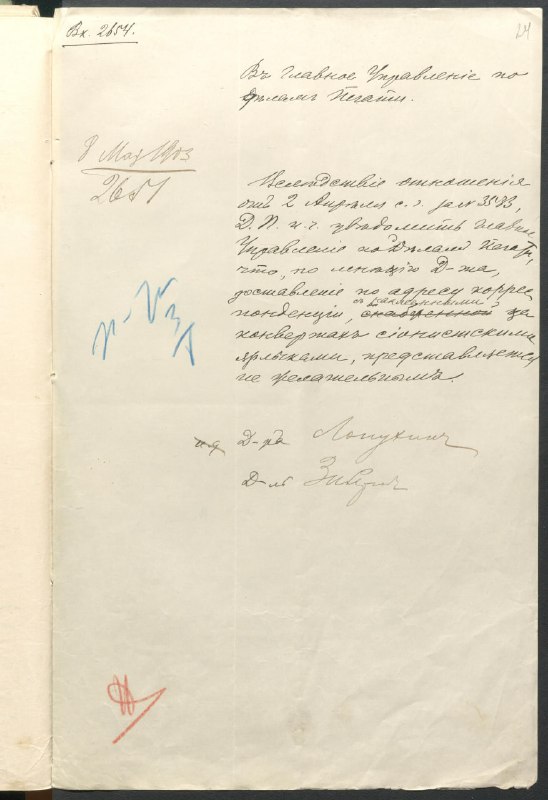 Вх. 2654.
24
Въ Главное Управленіе по
дѣламъ Печати.
8 Мая 1903
2651
Вслѣдствіе отношенія
отъ 2 Апрѣля с. г. за № 3533,
Д. П. и. ч. увѣдомить Главное
Управленіе по Дѣламъ Печати,
что, по мнѣнію Д-та,
доставленіе по адресу корре
съ наклеенными
спонденціи, снабженной на
конвертахъ сіонистскими
ярлыками, представляется
не желательнымъ.
и д Д-ра Лопухинъ
Д-ль